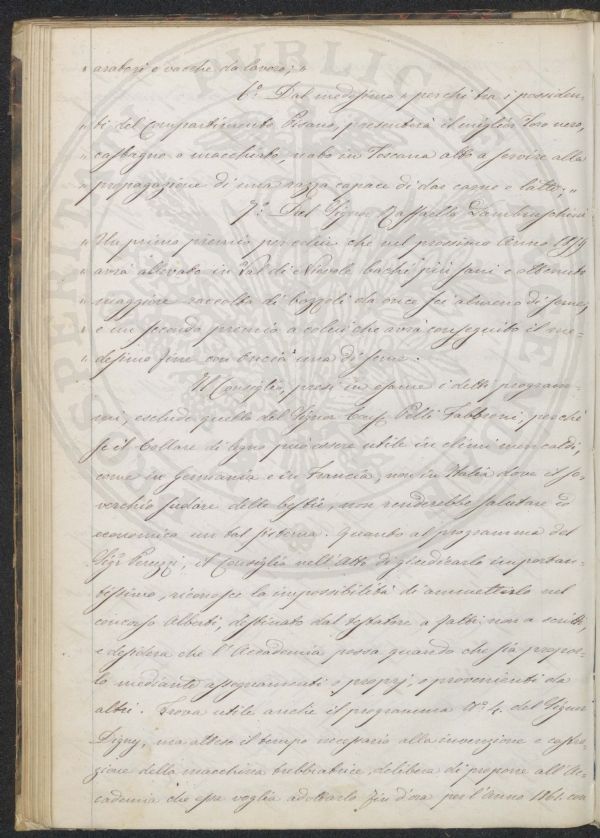 " aratori e vacche da lavoro; "
6.° Dal medesimo " perchè tra i possiden-
" ti del Compartimento Pisano, presenterà il miglior Toro nero,
" castagno, o macchiato, nato in Toscana atto a servire alla
" propagazione di una razza capace di dar carne e latte; "
7.° Del Signor Raffaello Lambruschini
" Un primo premio per colui che nel prossimo Anno 1859
" avrà allevato in Val di Nievole bachi più sani e ottenuto
" maggiore raccolta di bozzoli da once sei almeno di seme;
" e un secondo premio a colui che avrà conseguito il me-
" desimo fine con oncia una di seme.
Il Consiglio, presi in esame i detti program-
mi, esclude quello del Signor Pelli Fabbroni, perchè
se il Collare di legno può essere utile in climi men caldi,
come in Germania e in Francia, non in Italia dove il so-
verchio sudare delle bestie, non renderebbe salutare ed
economico un tal sistema. Quanto al programma del
Sig.r Peruzzi, il Consiglio nell'Atto di giudicarlo importan-
tissimo, riconosce la impossibilità di ammetterlo nel
concorso Alberti, destinato dal testatore a fatti non a scritti,
e desidera che l'Accademia possa quando che sia propor-
lo mediante assegnamenti o proprj, o provenienti da
altri. Trova utile anche il programma N.° 4. del Signor
Digny, ma atteso il tempo necessario alla invenzione e costru-
zione della macchina trebbiatrice, delibera di proporre all'Ac-
cademia che essa voglia adottarlo fin d'ora per l'Anno 1861. con